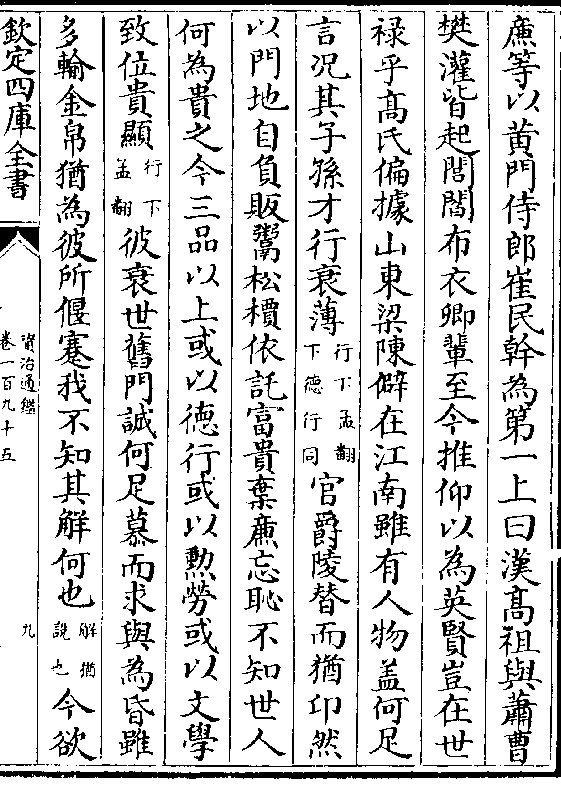 㢘等以黄門侍郎崔民幹為第一上曰漢髙祖與蕭曹
樊灌皆起閭閻布衣卿輩至今推仰以為英賢豈在世
禄乎髙氏偏據山東梁陳僻在江南雖有人物盖何足
言况其子孫才行衰薄行下孟翻下德行同官爵陵替而猶卬然
以門地自負販鬻松檟依託富貴棄㢘忘恥不知世人
何為貴之今三品以上或以徳行或以勲勞或以文學
致位貴顯行下孟翻彼衰世舊門誠何足慕而求與為昏雖
多輸金帛猶為彼所偃蹇我不知其解何也解猶説也今欲
欽定四庫全書
資治通鑑
卷一百九十五
九